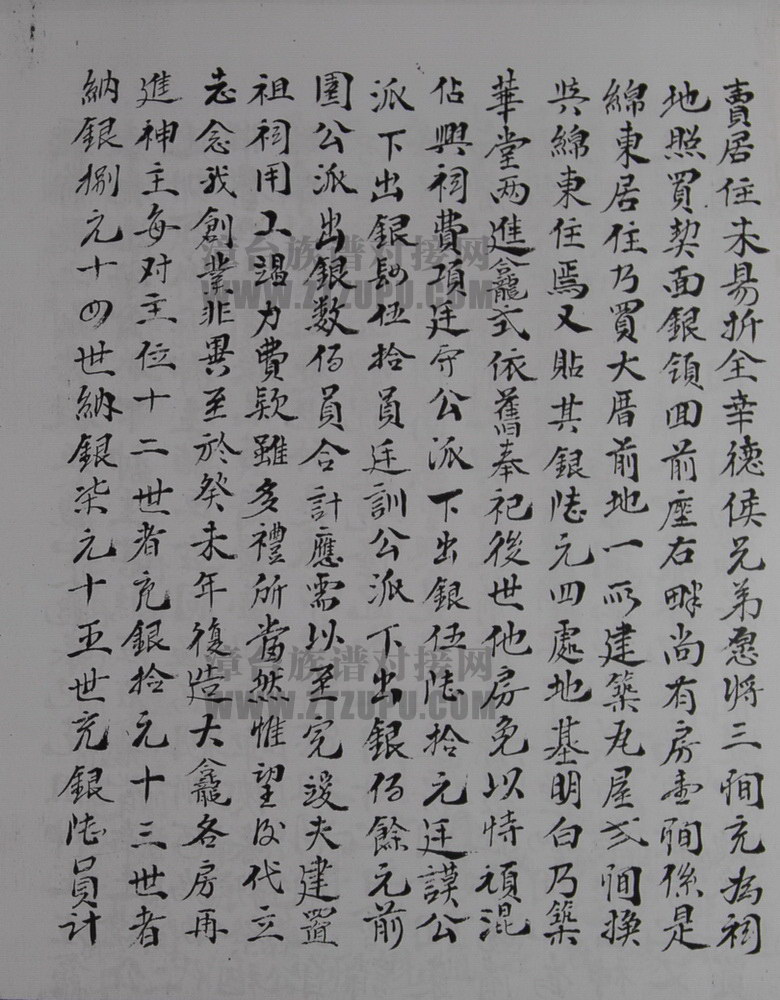 賣居住未易折全幸德侯兄弟愿將三間充為祠
地照買契面銀領回前座右畔尚有房壹間係是
綿東居住乃買大厝前地一所建築瓦屋弍間換
與綿東住焉又貼其銀陸元四處地基明白乃築
華堂兩進龕式依舊奉祀後世他房免以恃頑混
佔興祠費項廷守公派下出銀伍陸拾元廷謨公
派下出銀肆伍拾員廷訓公派下出銀佰餘元前
園公派出銀数佰員合計應需以至完竣夫建置
祖祠用工竭力費欵雖多禮所當然惟望後代立
志念我創業非異至於癸未年復造大龕各房再
進神主每对主位十二世者充銀拾元十三世者
納銀捌元十四世納銀柒元十五世充銀陸員計
章台族谱对接网
WWW.ZTZUPU.COM
章台族谱对接网
WWW.ZTZUPU.COM